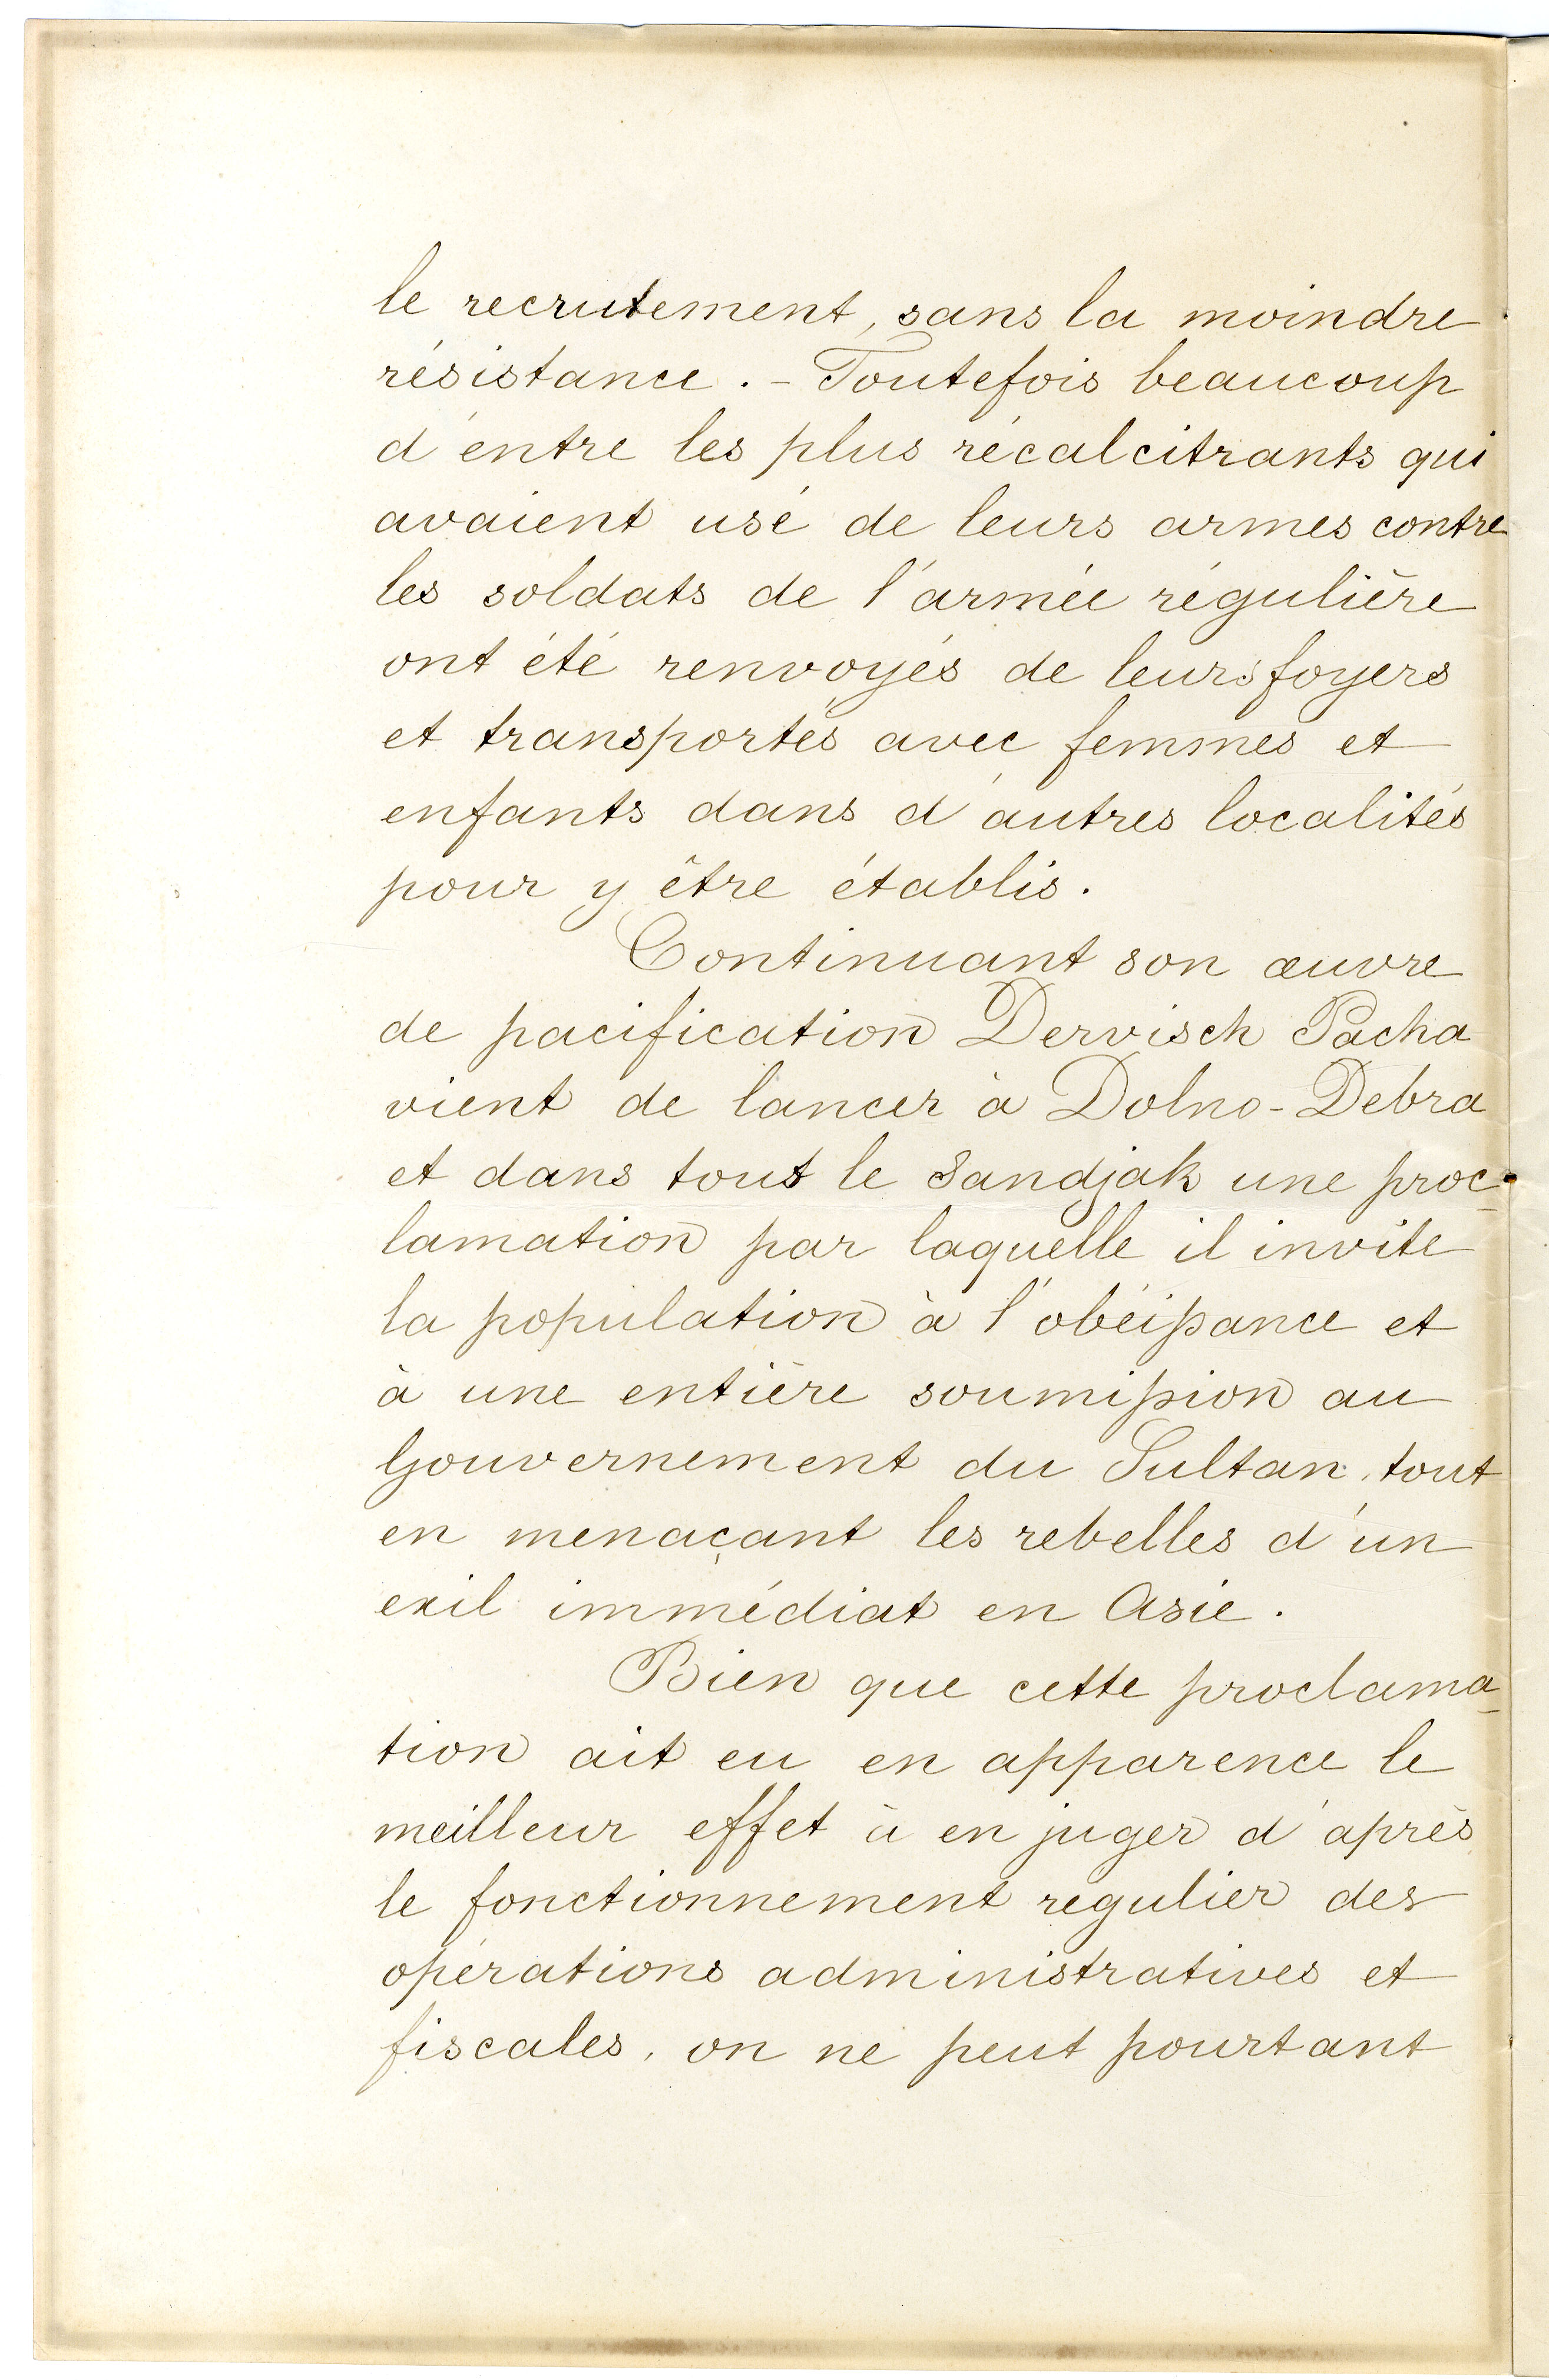 le recrutement, sans la moindre
résistance. - Toutefois beaucoup
d'entre les plus récalcitrants qui
avaient usé de leurs armes contre
les soldats de l'armée régulière
ont été renvoyés de leurs foyers
et transportés avec femmes et
enfants dans d'autres localités
pour y être établis.
Continuant son œuvre
de pacification Dervisch Pacha
vient de lancer à Dolno-Debra
et dans tout le Sandjak une proc-
lamation par laquelle il invite
la population à l'obéissance et
à une entière soumission au
Gouvernement du Sultan, tout
en menaçant les rebelles d'un
exil immédiat en Asie.
Bien que cette proclama-
tion ait eu en apparence le
meilleur effet à en juger d'après
le fonctionnement regulier des
opérations administratives et
fiscales, on ne peut pourtant